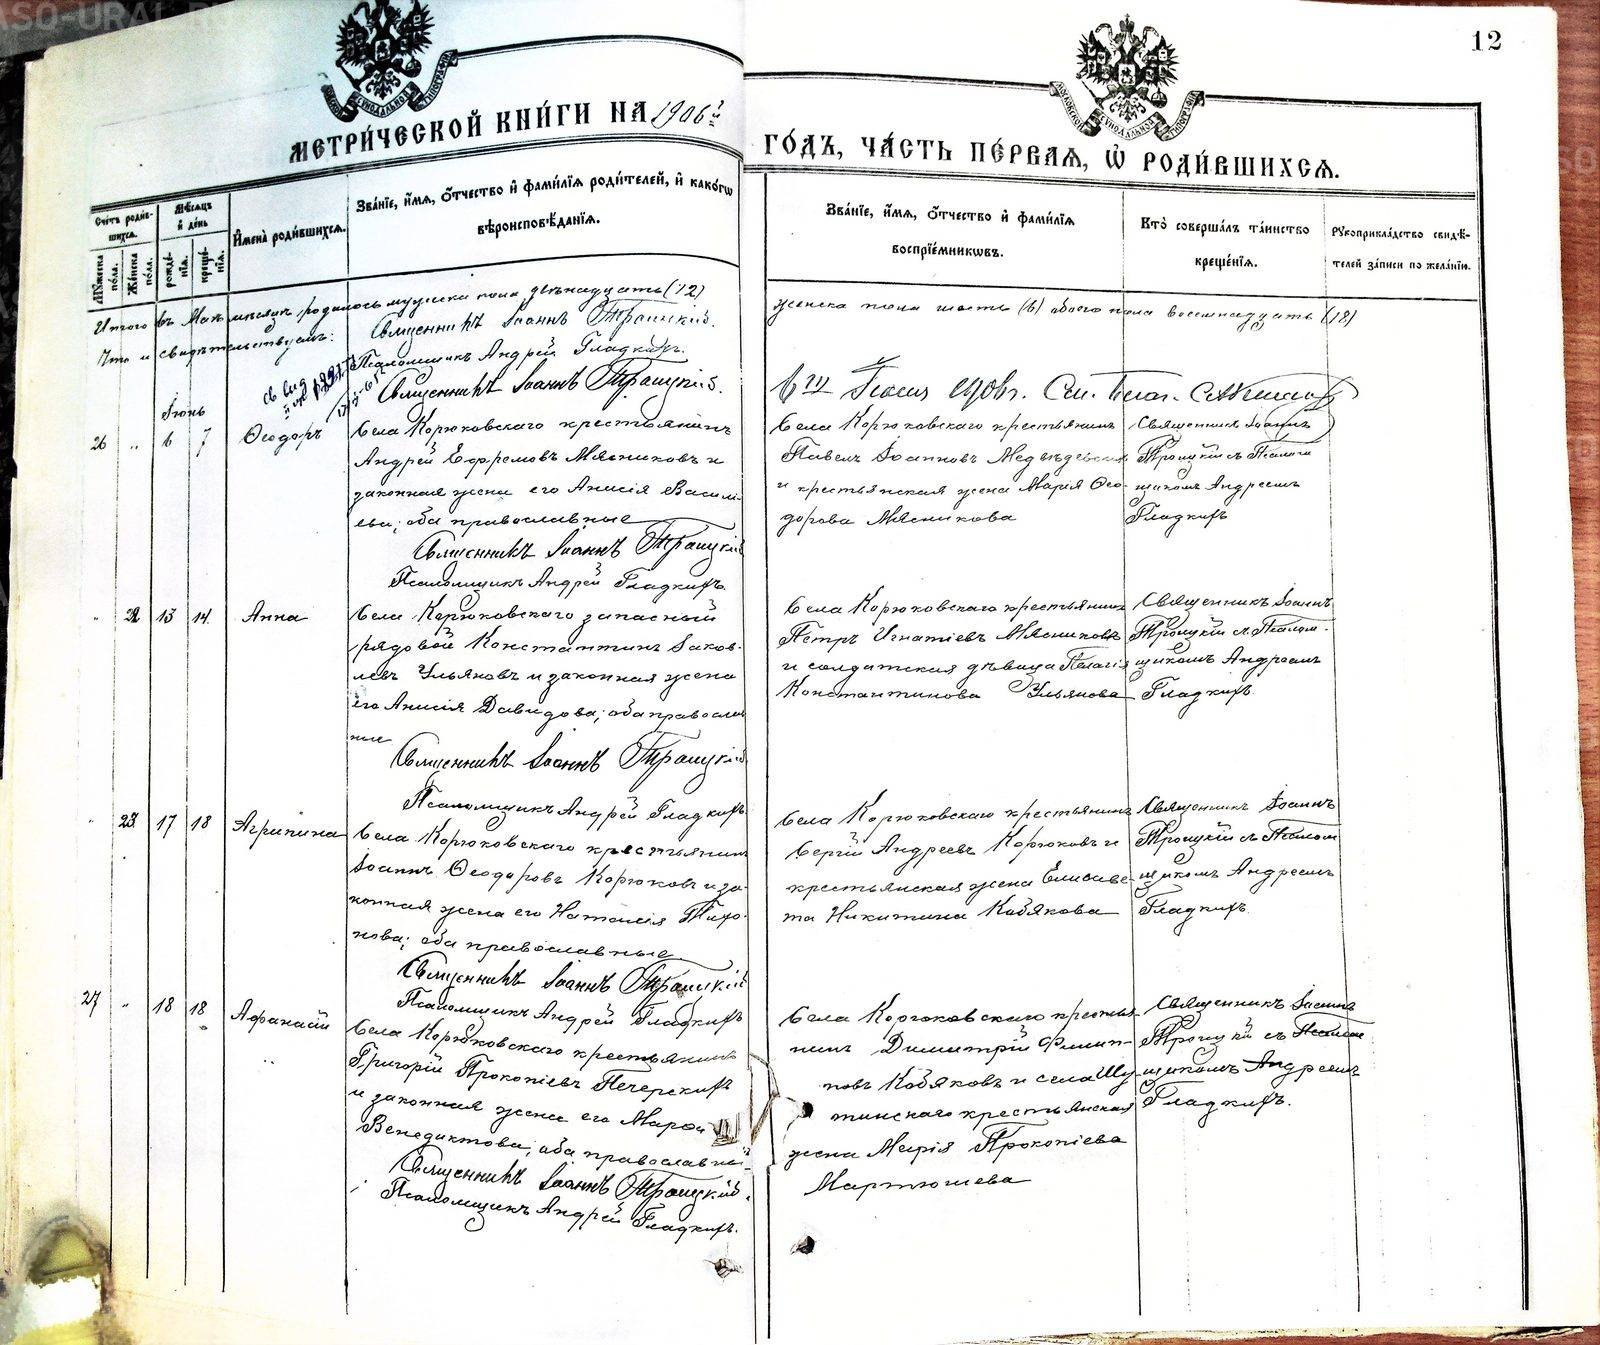 12
МЕТРИ́ЧЕСКОЙ КНИ́ГИ НА 1906й
ГО́ДЪ, ЧА́СТЬ ПЕ́РВАѦ, Ѡ҆ РОДИ́ВШИХСѦ.
Сче́тъ роди́в-
шихсѧ.
Мѣ́сѧцъ
и҆ де́нь
Му́жеска
по́ла.
Же́нска
по́ла.
рожде́-
нїѧ.
креще́-
нїѧ.
И҆мена̀ роди́вшихсѧ.
Зва́нїе, и҆́мѧ, ѻ҆́тчество и҆ фами́лїѧ роди́телей, и҆ како́гѡ
вѣроисповѣ́данїѧ.
Зва́нїе, и҆́мѧ, ѻ҆́тчество и҆ фами́лїѧ
воспрїе́мникѡвъ.
Кто̀ соверша́лъ та́инство
креще́нїѧ.
Рꙋкоприкла́дство свидѣ́-
телей за́писи по жела́нїю.
Итого въ Маѣ мѣсяцѣ родилось мужеска пола двѣнадцать (12)
женска пола шесть (6) обоего пола восемнадцать (18)
Что и свидѣтельствуемъ:
Священникъ Іоаннъ Троицкій.
Псаломщикъ Андрей Гладкихъ.
Священникъ Іоаннъ Троицкій.
6го Іюня 1906 г. Св. Благ.
Іюнь
26 „ 6 7 Ѳеодоръ
Села Корюковскаго крестьянинъ
Андрей Ефремовъ Мясниковъ и
законная жена его Анисія Василь-
ева; оба православные
Священникъ Іоаннъ Троицкій
Псаломщикъ Андрей Гладкихъ.
Села Корюковскаго крестьянинъ
Павелъ Іоанновъ Медвѣдевскихъ
и крестьянская жена Марія Ѳео-
дорова Мясникова
Священникъ Іоаннъ
Троицкій съ Псалом
щикомъ Андреемъ
Гладкихъ
„ 22 13 14 Анна
Села Корюковскаго запасный
рядовой Константинъ Іаков-
левъ Ульяновъ и законная жена
его Анисія Давидова; оба православ
ные
Священникъ Іоаннъ Троицкій
Псаломщикъ Андрей Гладкихъ
Села Корюковскаго крестьянинъ
Петръ Игнатіевъ Мясниковъ
и солдатская дѣвица Пелагія
Константинова Ульянова
Священникъ Іоаннъ
Троицкій съ Псалом-
щикомъ Андреемъ
Гладкихъ.
„ 23 17 18 Агрипина
Села Корюковскаго крестьянинъ
Іоаннъ Ѳеодоровъ Корюковъ и за-
конная жена его Наталія Тихо-
нова; оба православные
Священникъ Іоаннъ Троицкій
Псаломщикъ Андрей Гладкихъ
Села Корюковскаго крестьянинъ
Сергій Андреевъ Корюковъ и
крестьянская жена Елисаве-
та Никитина Кобякова
Священникъ Іоаннъ
Троицкій съ Псалом
щикомъ Андреемъ
Гладкихъ.
27 „ 18 18 Афанасій
Села Корюковскаго крестьянинъ
Григорій Прокопіевъ Печерскихъ
и законная жена его Марѳа
Венедиктова; оба православны
Священникъ Іоаннъ Троицкій.
Псаломщикъ Андрей Гладкихъ.
Села Корюковскаго крестья-
нинъ Димитрій Филип-
повъ Кобяковъ и села Шу
тинскаго крестьянская
жена Марія Прокопіева
Мартюшева
Священникъ Іоаннъ
Троицкій съ Псалом
щикомъ Андреемъ
Гладкихъ.